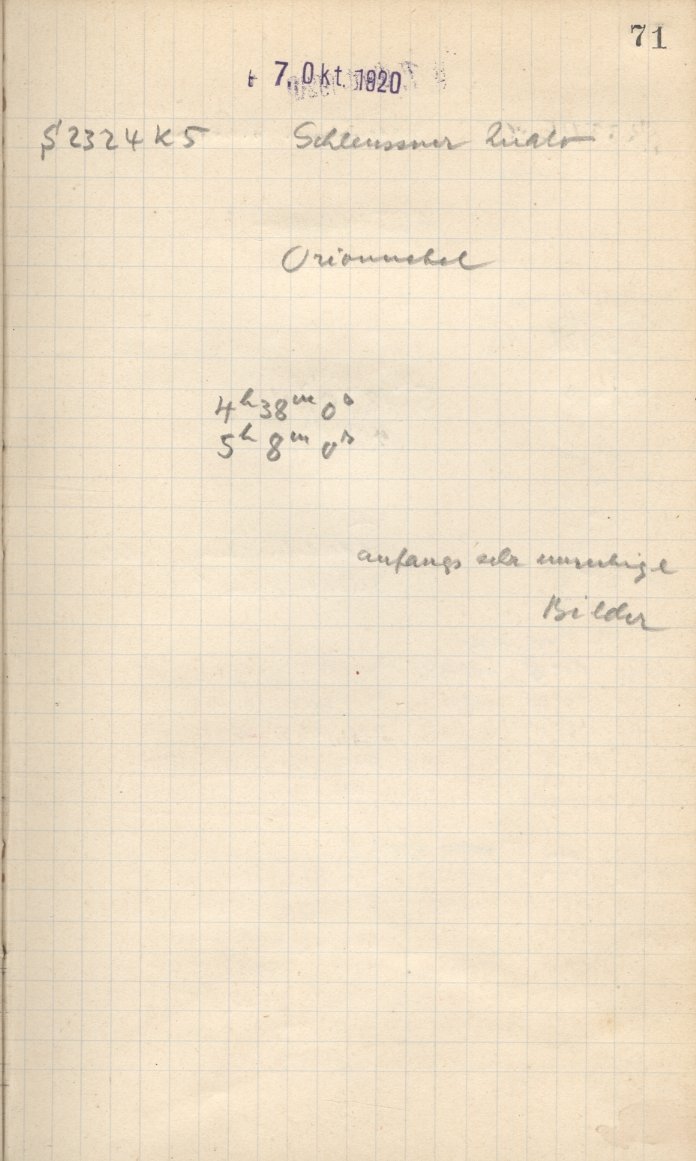 71
7. Okt. 1920
S 2324 K5 Schleussner
Orionnebel
4ʰ 38ᵐ 0ˢ
5ʰ 8ᵐ 0ˢ
anfangs sehr unruhige
Bilder